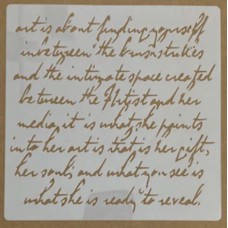 art is about finding yourself
inbetween the brush strokes
and the intimate space created
between the Artist and her
media, it is what she paints
into her art is that is her gift,
her soul, and what you see is
what she is ready to reveal.